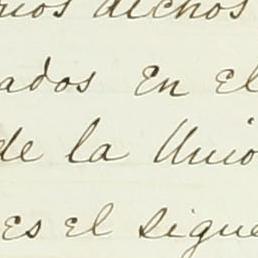 rios dichos
ados En el
de la Unio
Es el sigue